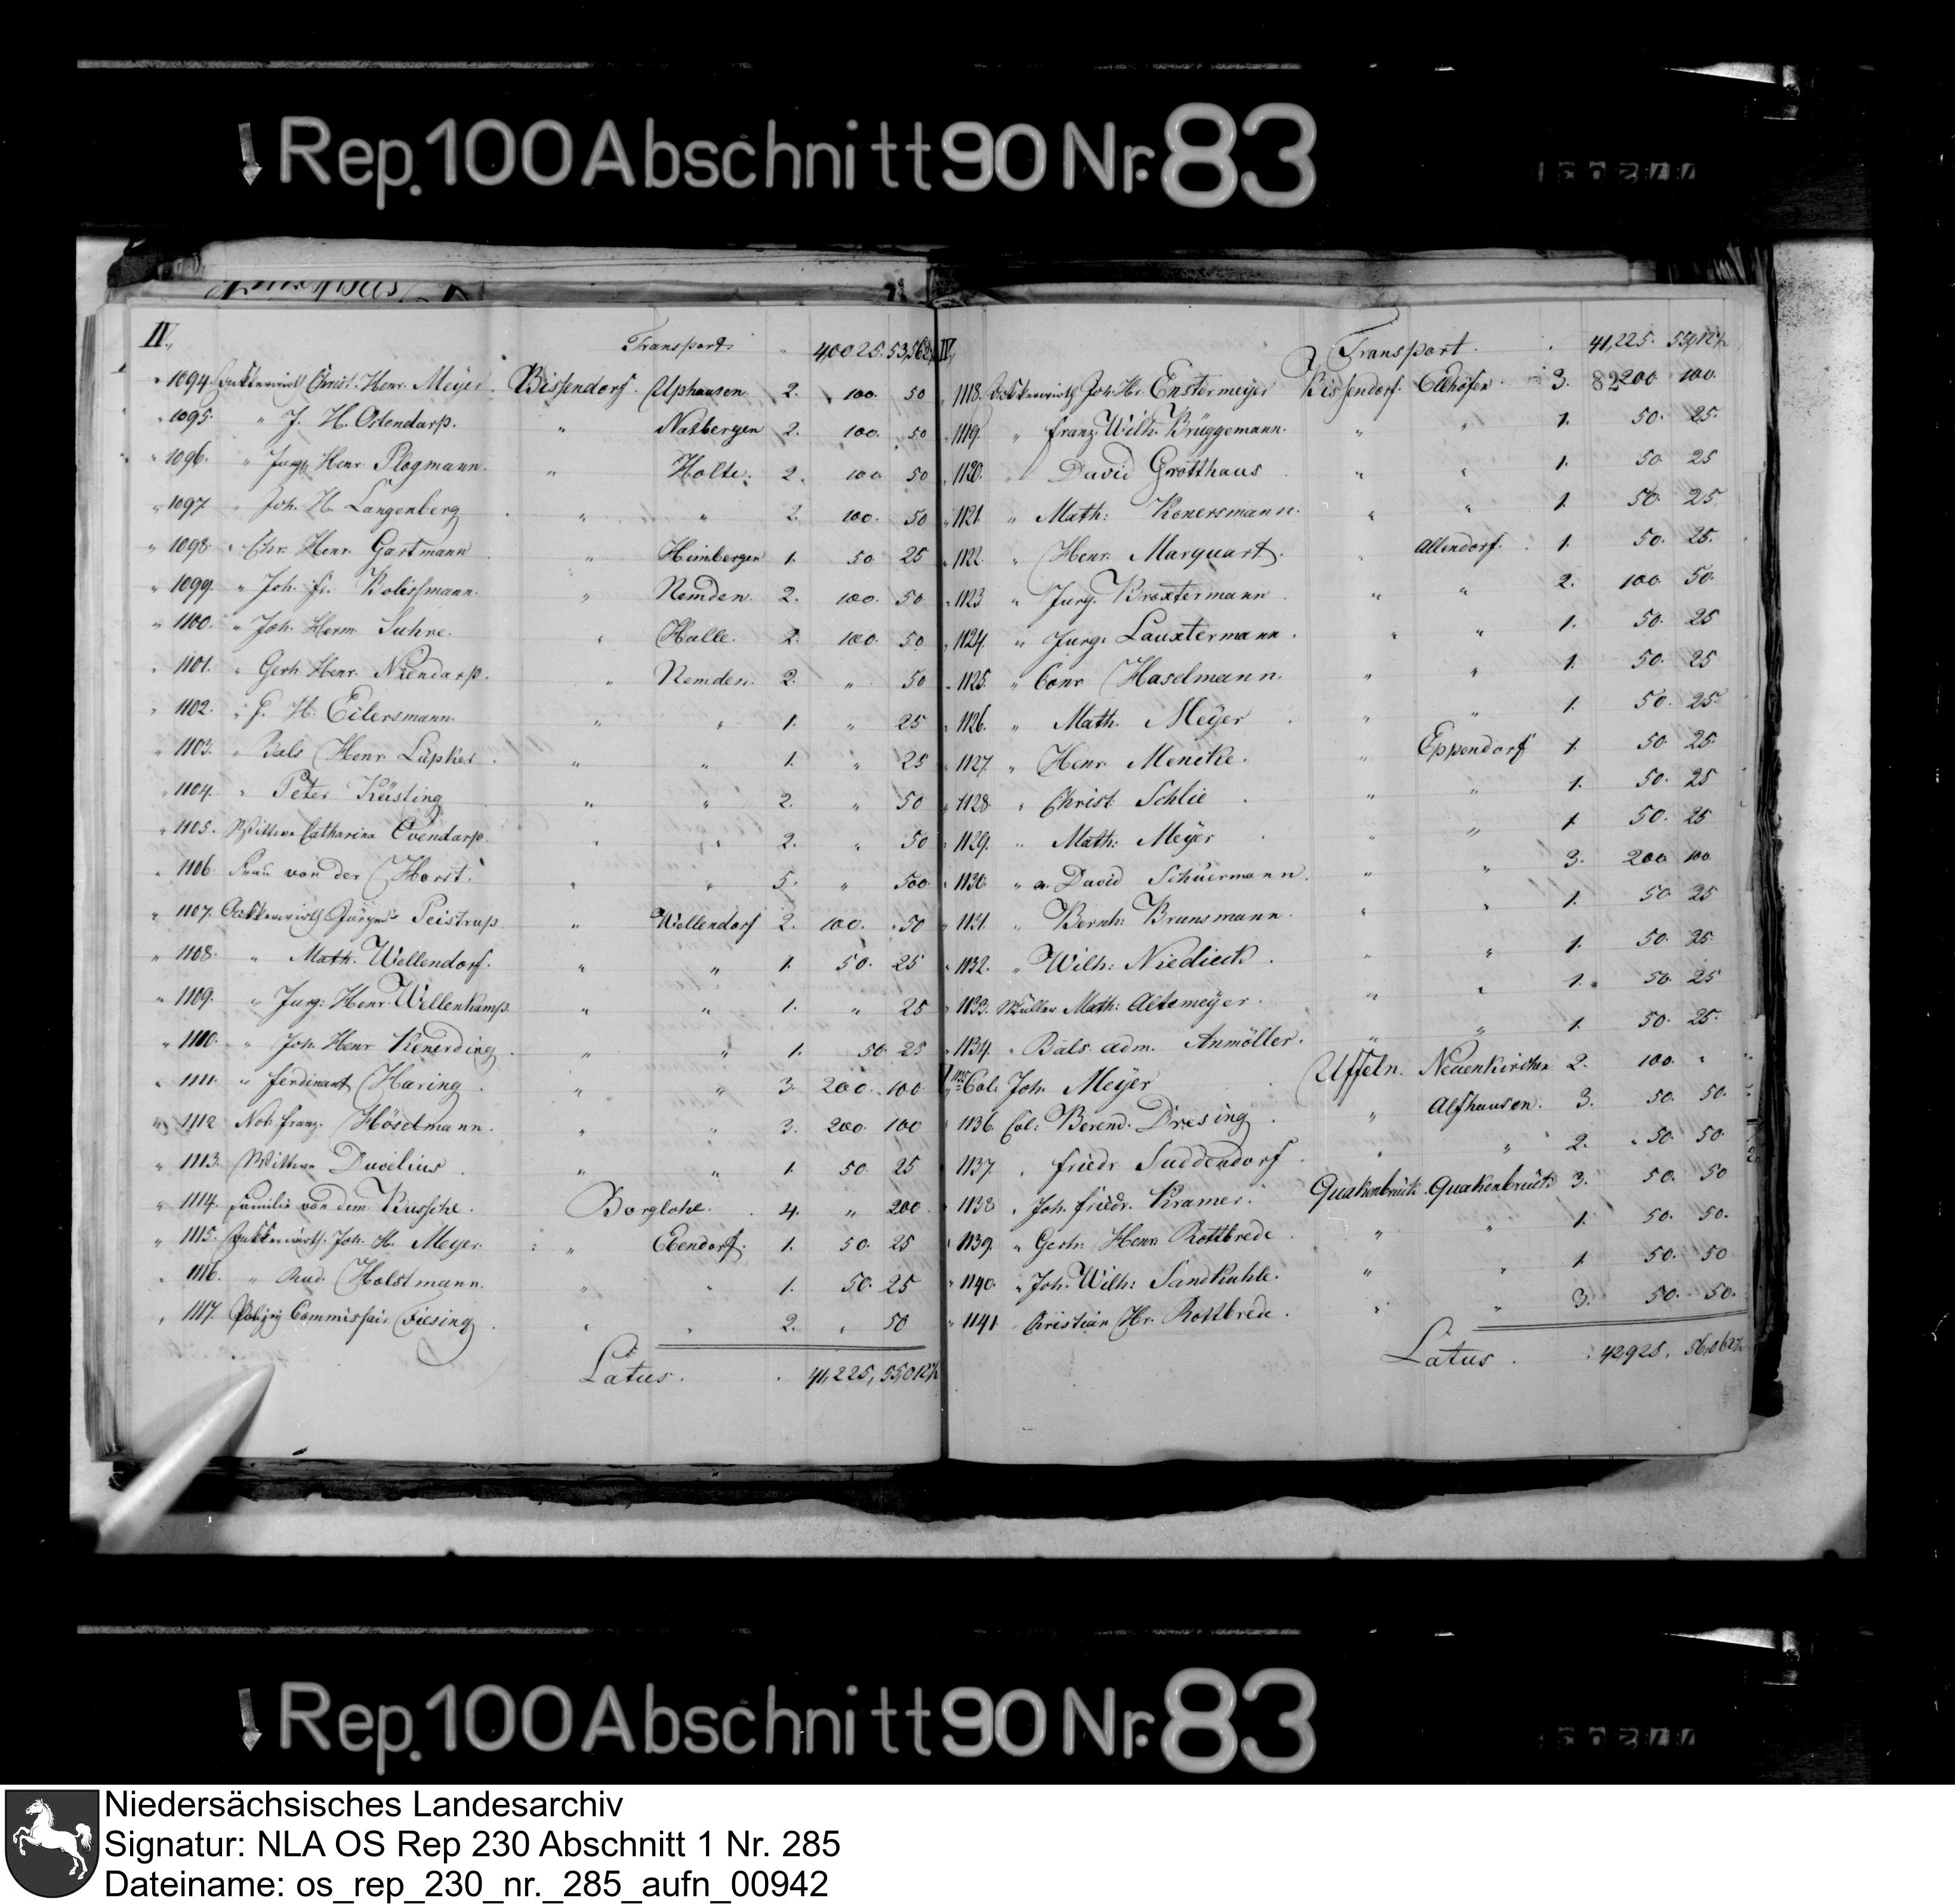 Rep. 100 Abschnitt 90 Nr. 83
IV. Transport " 40025. 53,562½
" 1094. Ackkerwirth Christ. Henr. Meyer. Bissendorf. Uphausen. 2. 100. 50
" 1095. " J. H. Ostendarp. " Natbergen 2. 100. 50
" 1096. " Jurg. Henr. Plogmann. " Holte. 2. 100 50
" 1097 " Joh. H. Langenberg " " 2. 100. 50
" 1098. " Chr. Henr. Gartmann " Himbergen 1. 50 25
" 1099. " Joh. Fr. Bolissmann. " Nemden. 2. 100. 50
" 1100. " Joh. Herm. Suhre. " Halle. 2. 100. 50
" 1101. " Gerh. Henr. Niendarp. " Nemden. 2. " 50
" 1102. " J. H. Eilersmann. " " 1. " 25
" 1103. " Bals Henr. Lüpkes. " " 1. " 25
" 1104. " Peter Küsting " " 2. " 50
" 1105. Wittwe Catharina Ovendarp. " " 2. " 50
" 1106. Frau von der Horst. " " 5. " 500.
" 1107. Ackkerwirth Jürgens Peistrup " Wellendorf 2. 100. 50
" 1108. " Math. Wellendorf. " " 1. 50. 25
" 1109. " Jurg: Henr. Wellenkamp. " " 1. " 25
" 1110. " Joh. Henr. Kenerding. " " 1. 50. 25
" 1111. " Ferdinant Haring. " " 3. 200. 100
" 1112 Not. Franz. Höselmann. " " 3. 200. 100
" 1113. Wittwe Ducelius. " " 1. 50. 25
" 1114. Familie von dem Bussche. Borglohe. 4. " 200
" 1115. Ackkerwirth. Joh. H. Meyer. " Ebendorf. 1. 50. 25
" 1116. " Rud. Holstmann. " " 1. 50. 25
" 1117. Polizey Commissair Fiesing. " " 2. " 50
Latus. 41,225, 55,012½
IV. Transport. 41,225. 55,012½
82
" 1118. Ackkerwirth Joh. Hr. Enstermeyer Bissendorf. 3. 200 100.
" 1119. " Franz. Wilh. Brüggemann. " " 1. 50. 25.
" 1120. " David Grotthaus " " 1. 50 25
" 1121. " Math: Konersmann. " " 1. 50. 25.
" 1122. " Henr. Marquart. " Allendorf. 1. 50. 25.
" 1123 " Jurg. Broxtermann. " " 2. 100. 50.
" 1124. " Jurg. Lauxtermann. " " 1. 50. 25
" 1125. " Conr Haselmann. " " 1. 50. 25
" 1126. " Math. Meyer " " 1. 50. 25.
" 1127. " Henr. Menike. " Eppendorf 1. 50. 25.
" 1128. " Christ. Schlie " " 1. 50. 25
" 1129. " Math: Meyer " " 1 50. 25
" 1130. " a. David Schüermann. " " 3. 200 100
" 1131. " Bernh: Brunsmann. " " 1. 50 25
" 1132. " Wilh: Niedieck. " " 1. 50. 25.
" 1133. Müller Math: Altemeyer. " " 1. 50. 25
" 1134. " Bals. adm. Anmöller. " " 1. 50. 25.
1135. Col. Joh. Meyer Uffeln. Neuenkirchen 2. 100. "
1136. Col: Berend. Dresing. " Alfhausen. 3. 50. 50.
1137. " Friedr Suddendorf " " 2. 50. 50.
1138 " Joh. Friedr. Kramer. Quakenbrück. Quakenbrück 3. 50. 50
1139. " Gerh. Henr. Rottbrede. " " 1. 50. 50.
" 1140. " Joh. Wilh: Sandkuhle. " " 1. 50. 50
" 1141 " Christian Hr. Rottbrede. " " 3. 50. 50.
Latus. 42,925, 56,062½
Rep. 100 Abschnitt 90 Nr. 83
Niedersächsisches Landesarchiv
Signatur: NLA OS Rep 230 Abschnitt 1 Nr. 285
Dateiname: os_rep_230_nr._285_aufn_00942